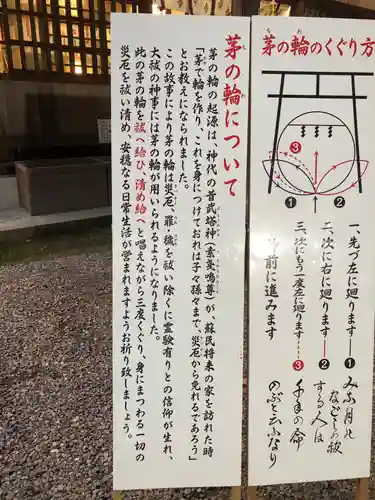 茅の輪について
茅の輪の起源は、神代の昔武塔神(素戔嗚尊)が、蘇民将来の家を訪れた時
「茅で輪を作り、これを身につけておれば子々孫々まで、災厄から免れるであろう」
とお教えになられました。
この故事により茅の輪は災厄、罪・穢を祓い除くに霊験有りとの信仰が生れ、
大祓の神事には茅の輪が用いられるようになりました。
此の茅の輪を祓へ給ひ、清め給へと唱えながら三度くぐり、身にまつわる一切の
災厄を祓い清め、安穏なる日常生活が営まれますようお祈り致しましょう。
茅の輪のくぐり方
ちのわ
③
❶
❷
一、先づ左に廻ります
❶
みな月の
二、次に右に廻ります
❷
なごしの祓
する人は
三、次にもう一度左に廻ります
③
千年の命
のぶと云ふなり
前に進みます